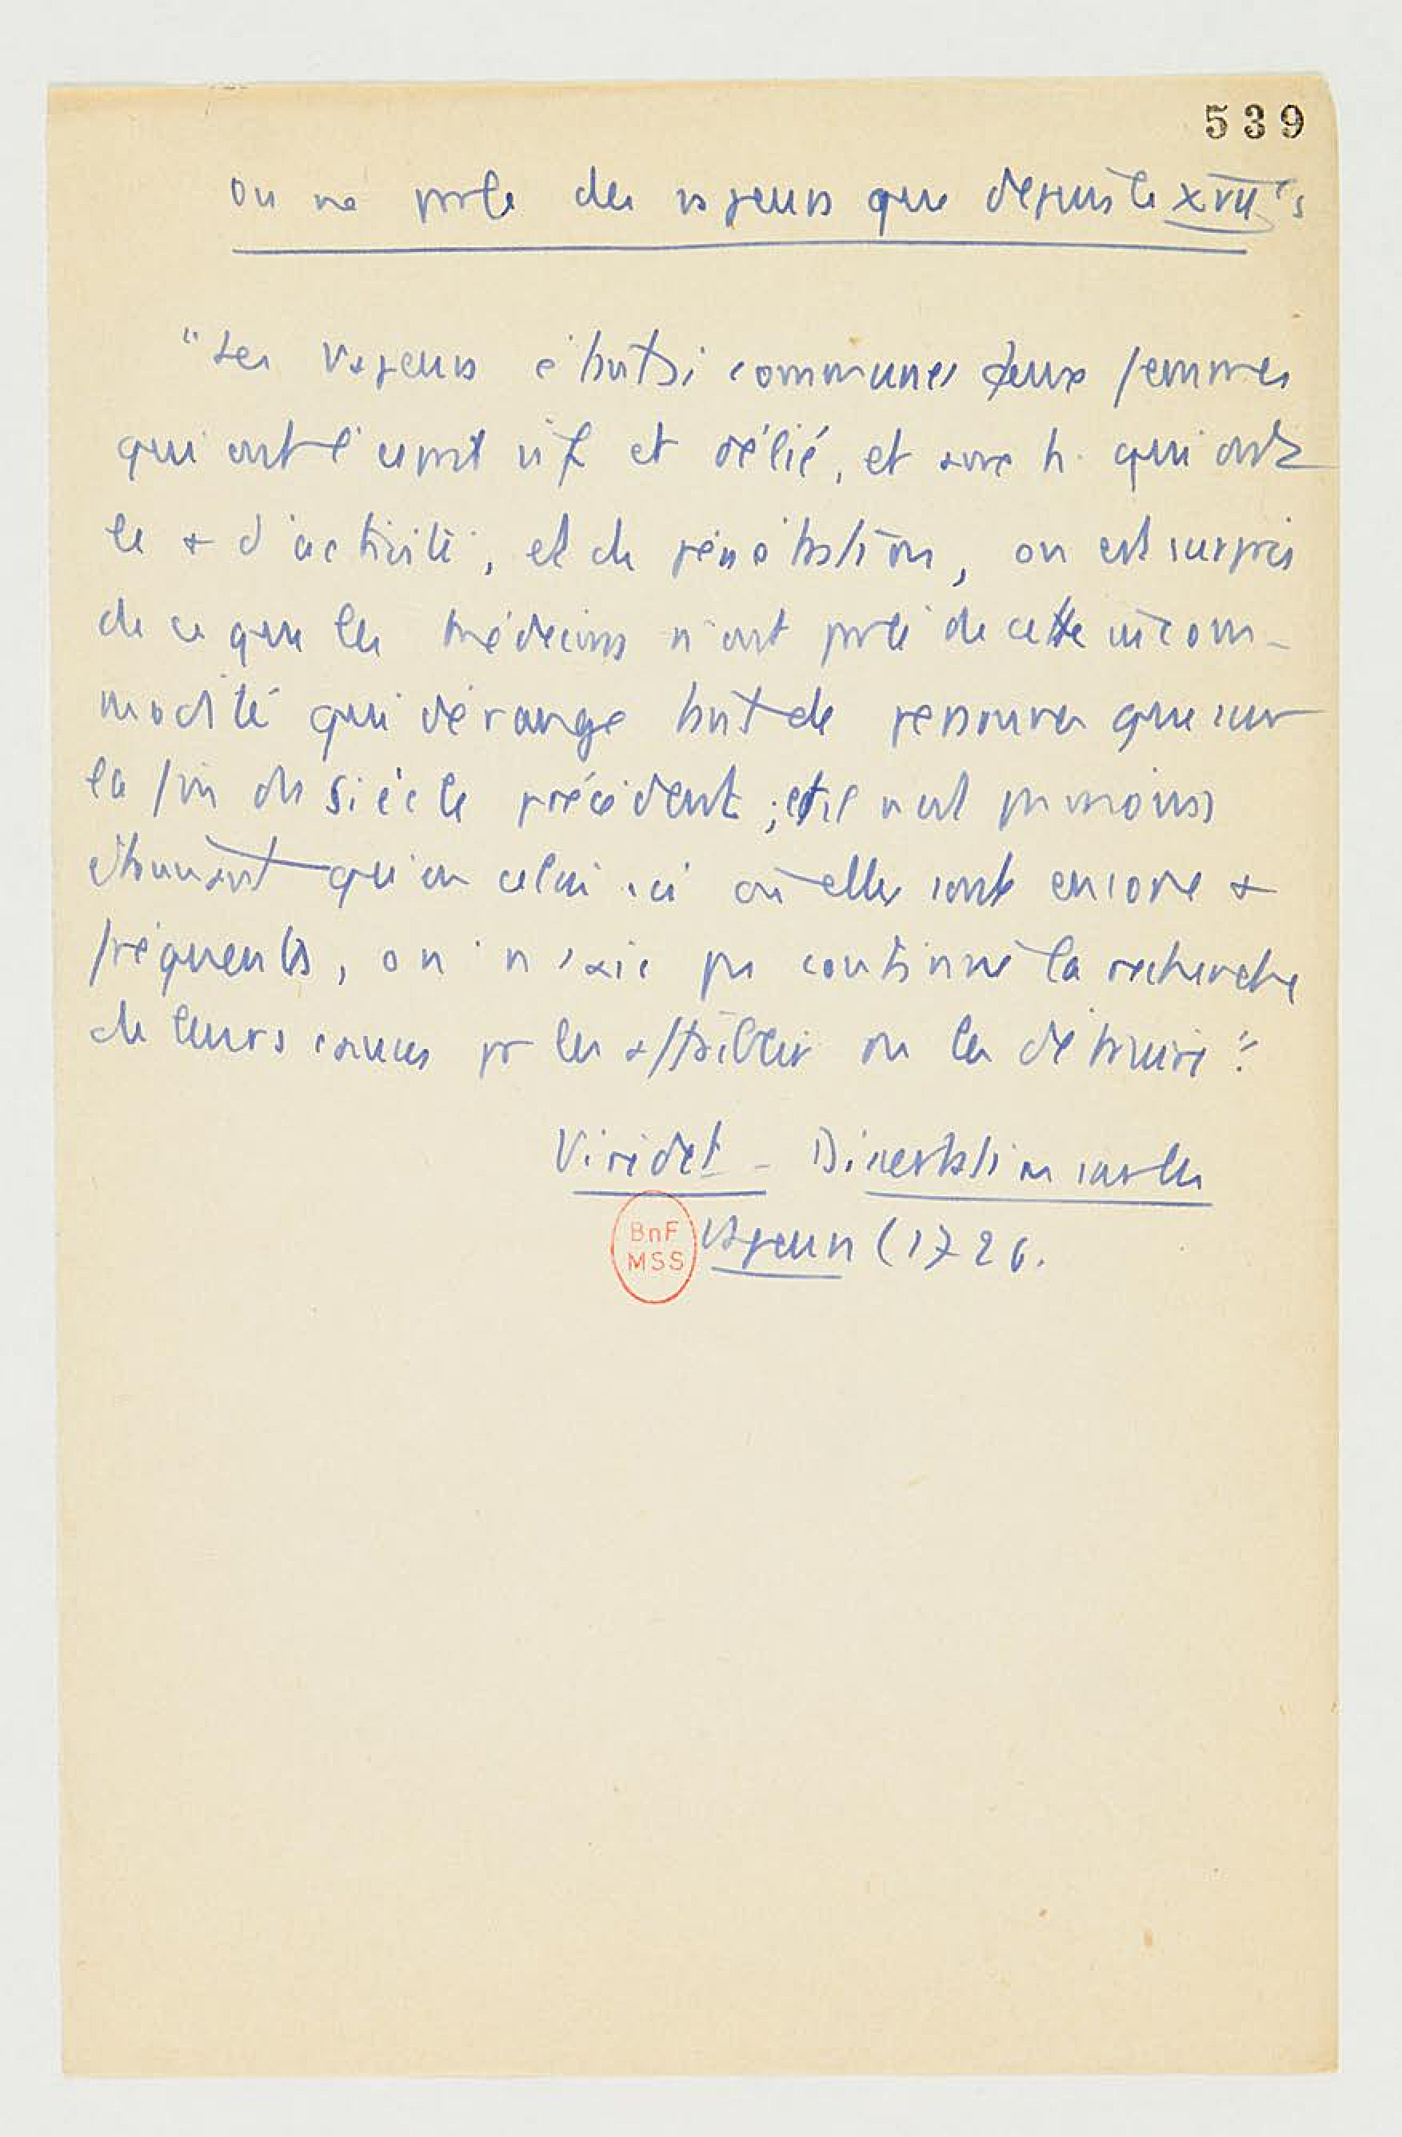 539
on ne parle des vapeurs que depuis le XVIIe s
"Les vapeurs étant si communes aux femmes
qui ont l'esprit vif et délié, et aux h. qui ont
le + d'activité, et de pénétration, on est surpris
de ce que les médecins n'ont parlé de cette incom-
modité qui dérange tant de personnes que sur
la fin du siècle précédent ; et il n'est pas moins
étonnant qu'en celui-ci où elles sont encore +
fréquentes, on n'aie pas continué la recherche
de leurs causes pr les affaiblir ou les détruire".
Viridet - Dissertation sur les
vapeurs (1726.
BnF
MSS